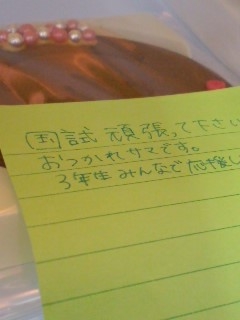 国試頑張って下さい
おつかれサマです。
3年生みんなで応援し